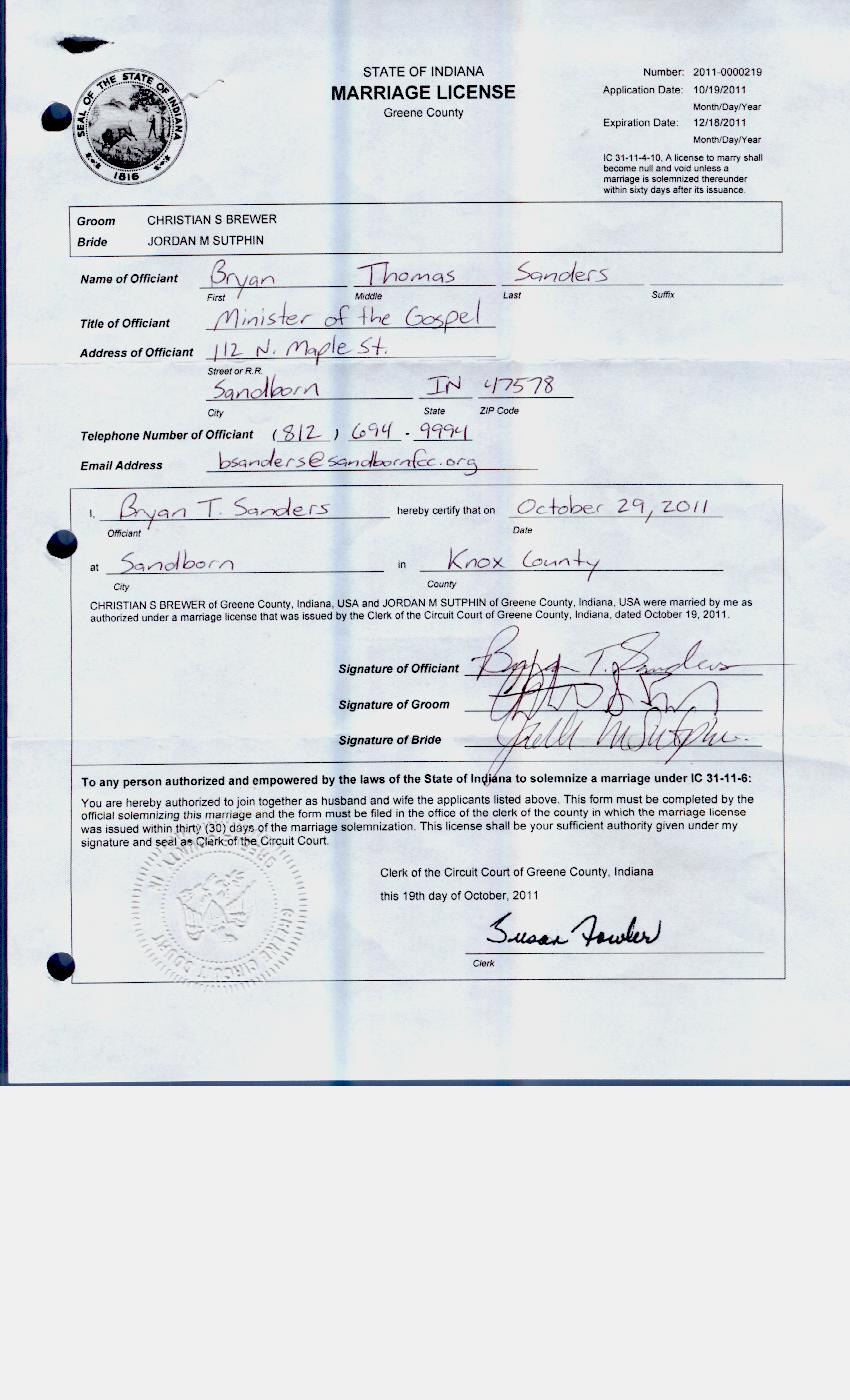 SEAL OF THE STATE OF INDIANA
1816
STATE OF INDIANA
MARRIAGE LICENSE
Greene County
Number: 2011-0000219
Application Date: 10/19/2011
Month/Day/Year
Expiration Date: 12/18/2011
Month/Day/Year
IC 31-11-4-10, A license to marry shall
become null and void unless a
marriage is solemnized thereunder
within sixty days after its issuance.
Groom CHRISTIAN S BREWER
Bride JORDAN M SUTPHIN
Name of Officiant Bryan Thomas Sanders
First Middle Last Suffix
Title of Officiant Minister of the Gospel
Address of Officiant 112 N. Maple St.
Street or R.R.
Sandborn IN 47578
City State ZIP Code
Telephone Number of Officiant (812) 694-9994
Email Address bsanders@sandbornfcc.org
I, Bryan T. Sanders hereby certify that on October 29, 2011
Officiant Date
at Sandborn in Knox County
City County
CHRISTIAN S BREWER of Greene County, Indiana, USA and JORDAN M SUTPHIN of Greene County, Indiana, USA were married by me as
authorized under a marriage license that was issued by the Clerk of the Circuit Court of Greene County, Indiana, dated October 19, 2011.
Signature of Officiant Bryan T. Sanders
Signature of Groom
Signature of Bride M Sutphin
To any person authorized and empowered by the laws of the State of Indiana to solemnize a marriage under IC 31-11-6:
You are hereby authorized to join together as husband and wife the applicants listed above. This form must be completed by the
official solemnizing this marriage and the form must be filed in the office of the clerk of the county in which the marriage license
was issued within thirty (30) days of the marriage solemnization. This license shall be your sufficient authority given under my
signature and seal as Clerk of the Circuit Court.
Clerk of the Circuit Court of Greene County, Indiana
this 19th day of October, 2011
Susan Fowler
Clerk